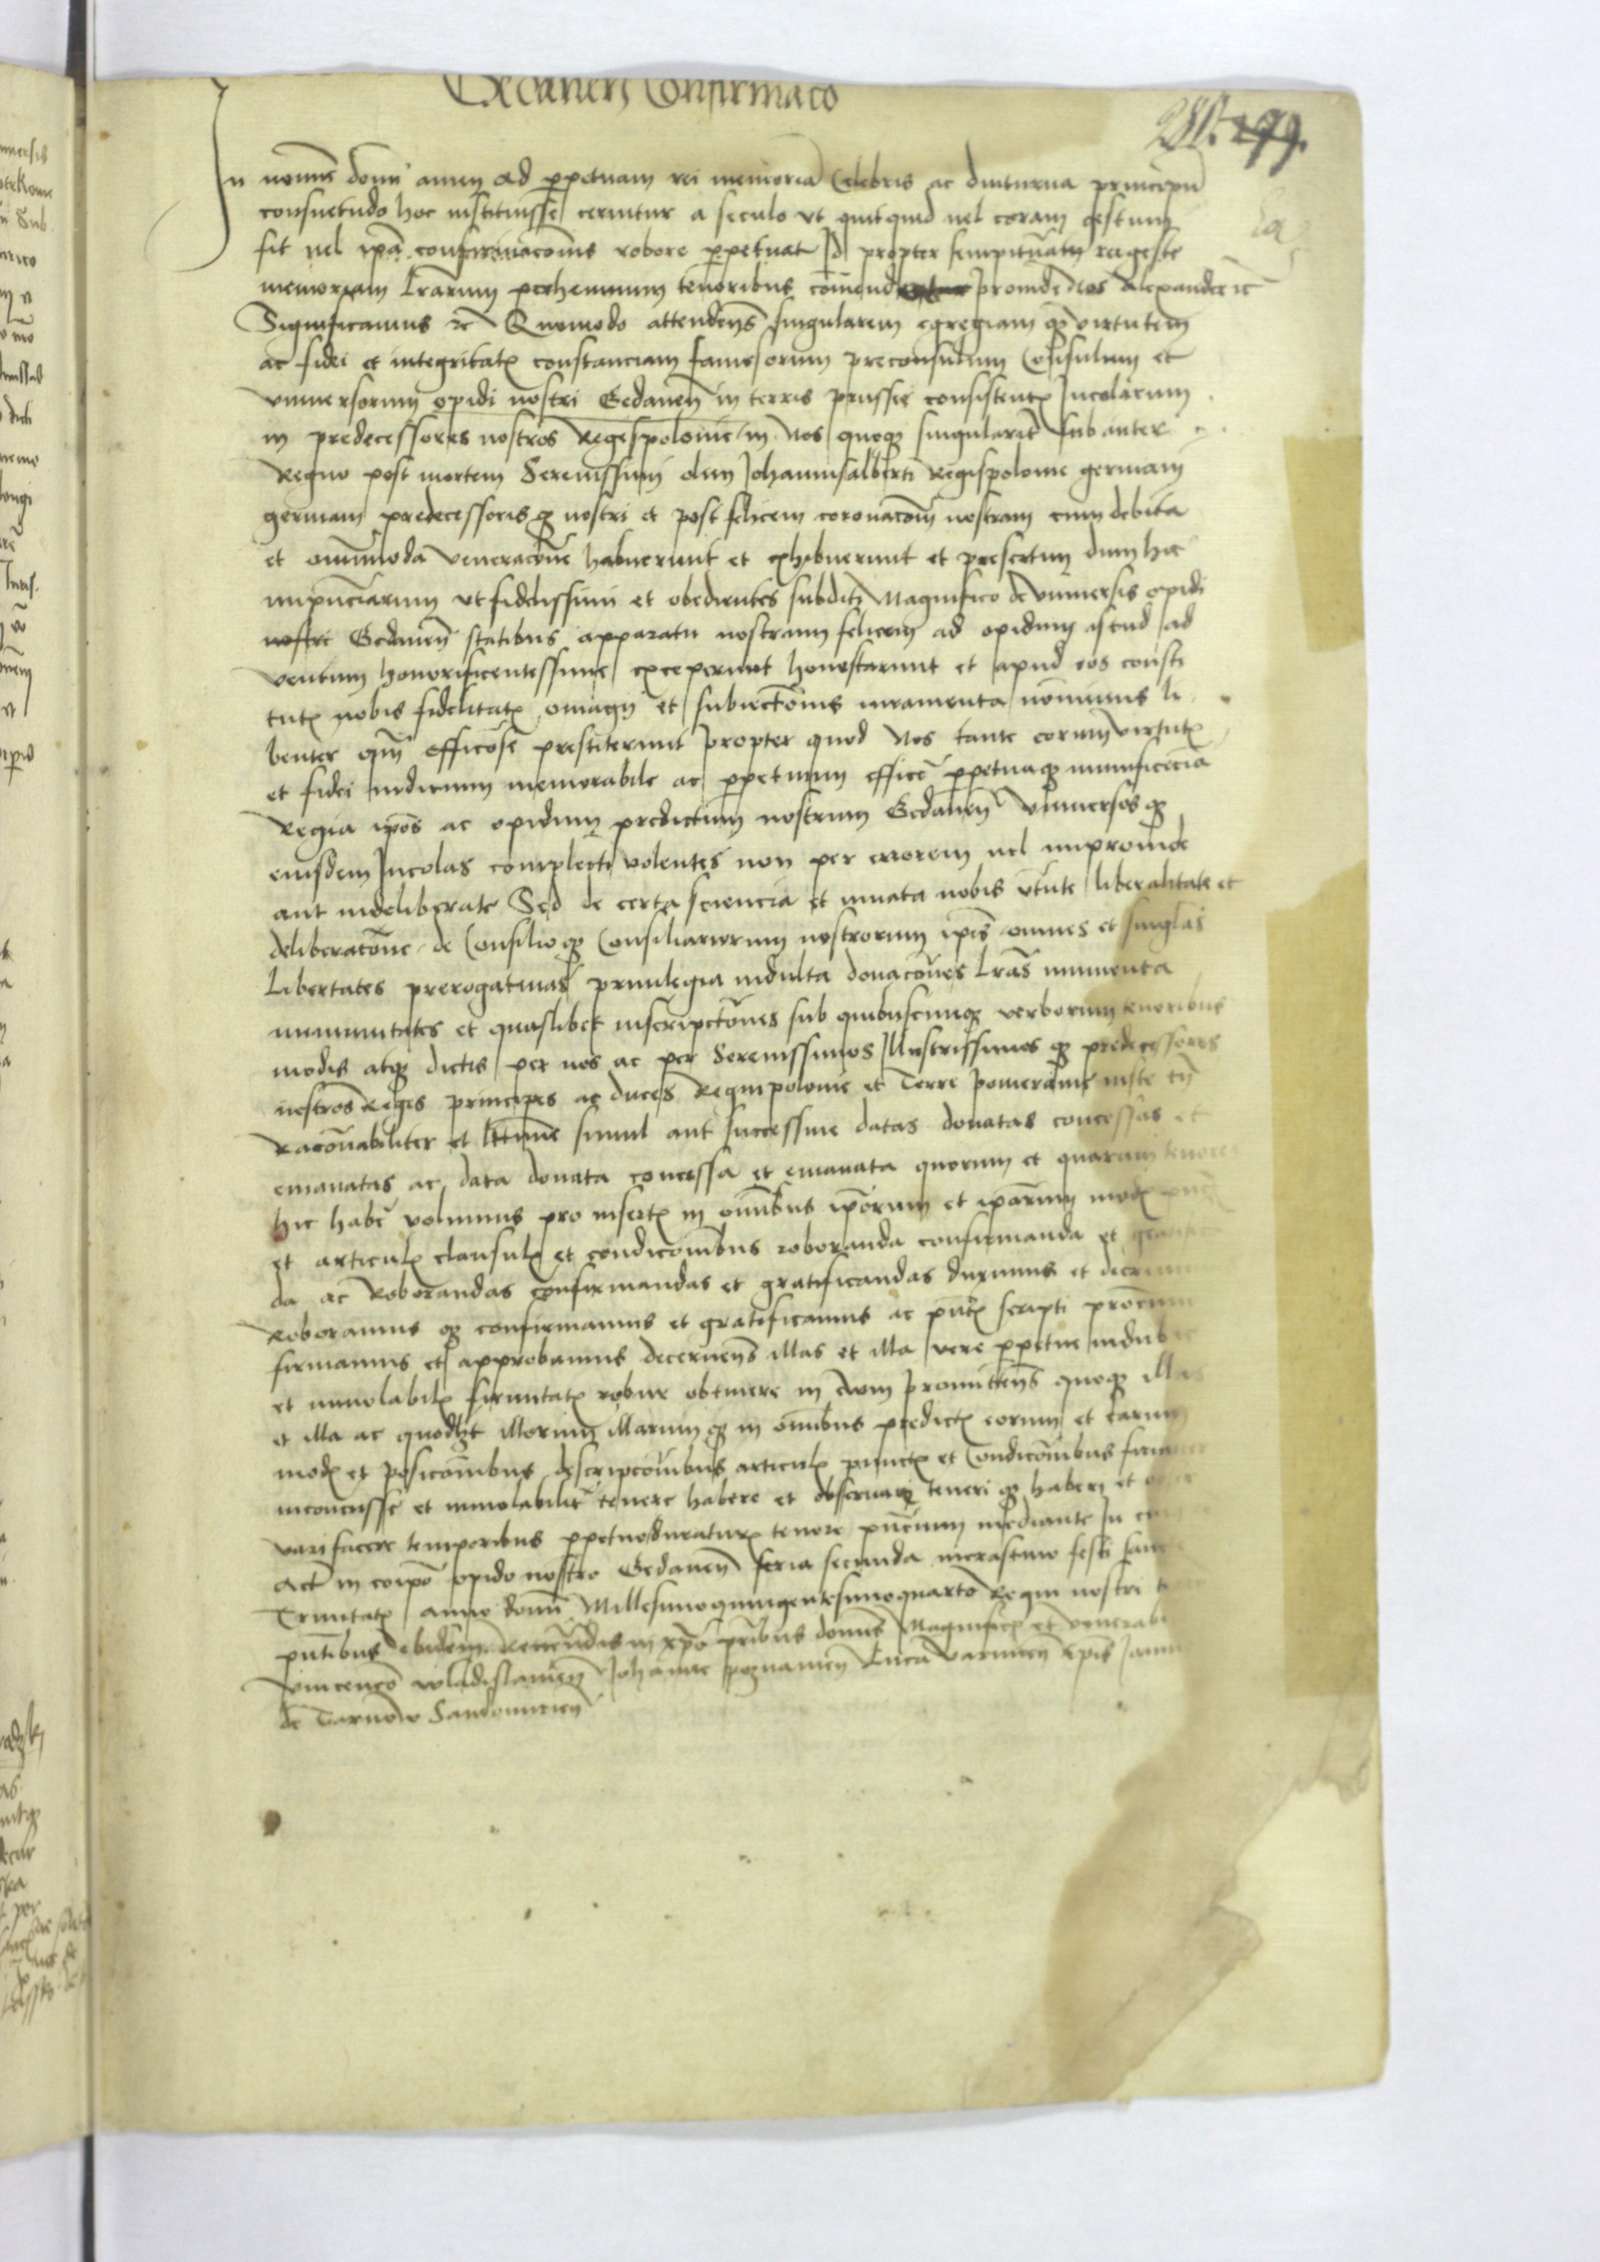 Gedanen Confirmaco
299.
In nomine domini amen Ad perpetuam rei memoriam Celebris ac diuturna principum
consuetudo hoc instituisse cernitur a seculo ut quitquid uel coram gestum
sit uel ipa confirmacionis robore perpetuat Id propter sempiternam rei geste
memoriam lrarum perhennium tenoribus comend proinde Nos Alexander etc
Significamus etc Quomodo attendens singularem egregiam que virtutem
ac fidei et integritatis constanciam famosorum preconsulum Consulum et
vniuersorum opidi nostri Gedanen in terris prussie consistentis Incolarum
in predecessores nostros Reges polonie in Nos quoque singulariter sub
Regno post mortem Serenissimi olim Johannis alberti Regis polonie germani
germani predecessoris que nostri et post felicem coronacom nostram cum debita
et omnimoda veneracone habuerunt et exhibuerunt et presertim dum hec
ut fidelissimi et obedientes subditi Magnifico de vniuersis opidi
nostri Gedanen statibus apparatu nostrum felicem ad opidum istud ad
ventum honorificentissime exceperunt honestarunt et apud eos consti
tutis nobis fidelitatis omagii et subiectionis iuramenta nominus li
benter qm officose prestiterunt propter quod Nos tante eorum virtutis
et fidei indicium memorabile ac perpetuum efficere perpetuaque munificecia
Regia ipos ac opidum predictum nostrum Gedanen Vniuersos que
eiusdem Incolas complecti volentes non per errorem uel improuide
aut indeliberate Sed de certa sciencia et innata nobis vtute liberalitate et
deliberacone de Consilio que Consiliariorum nostrorum ipis omnes et singlas
Libertates prerogatiuas priuilegia indulta donacones lras munimenta
immunitates et quaslibet inscripcones sub quibuscunque verborum tenoribus
modis atque dictis per nos ac per Serenissimos Illustrissimos que predecessores
nostros Reges principes ac duces Regni polonie et Terre pomeranie iuste tn
Raconabiliter et lttime simul aut successiue datas donatas concessas et
emanatas ac data donata concessa et emanata quorum et quarum tenores
hic habere volumus pro insertis in omibus iporum et iparum modis
et articulis clausulis et condicionibus roboranda confirmanda et
da ac Roborandas confirmandas et gratificandas duximus et
Roboramus que confirmamus et gratificamus ac pntis scripti
firmamus et approbamus decernens illas et illa vere perpetue
et inuiolabilis firmitatis robur obtinere in ewm promittens quoque illas
et illa ac quodlibet illorum illarum que in omibus predictis eorum et earum
modis et posicionibus descripcionibus articulis punctis et Condicionibus
inconcusse et inuiolabiliter tenere habere et obseruare teneri que haberi et
uari facere temporibus perpetuo duraturis tenore pncium mediante In
Act in corpo opido nostro Gedanen feria secunda in crastino festi
Trinitatis anno domini Millesimo quingentesimo quarto Regni nostri
pntibus ibidem Reuerendis in xpo pribus dominis Magnificis et
Vincencio wladislauien Johanne poznanien Luca varmien Epis
de Tarnow Sandomirien